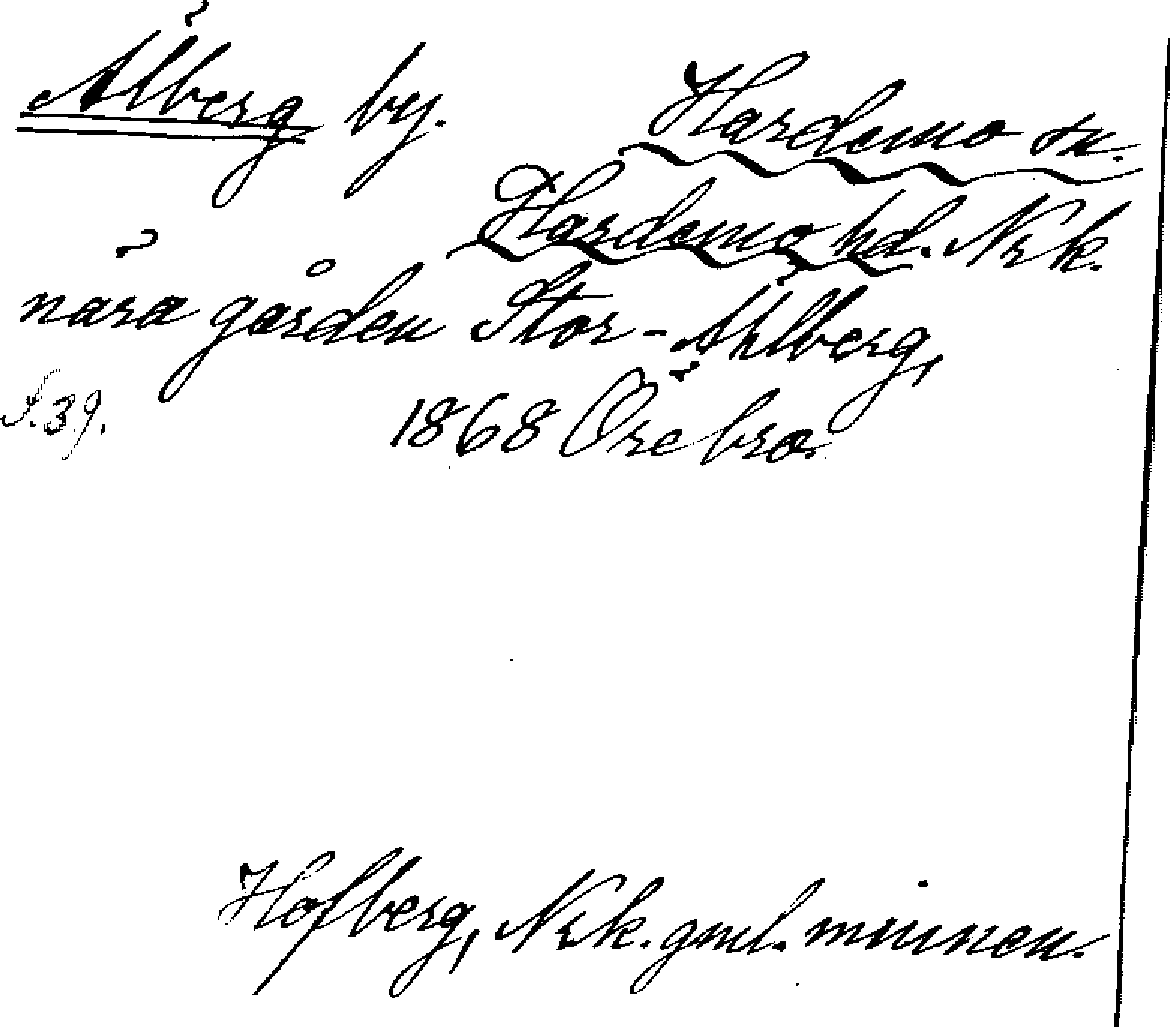 Älberg by. Hardemo sn.
Hardemo hd. Nrk.
nära gården Stor-Ählberg,
S. 39. 1868 Örebro.
Hofberg, Nrk. gml. minnen.